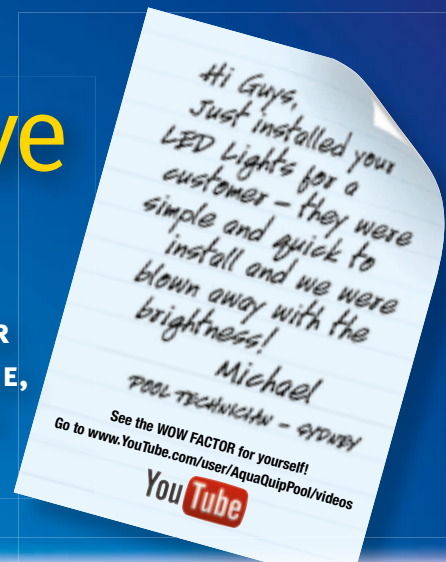 ve
R
E,
Hi Guys,
Just installed your
LED Lights for a
customer – they were
simple and quick to
install and we were
blown away with the
brightness!
Michael
POOL TECHNICIAN – SYDNEY
See the WOW FACTOR for yourself!
Go to www.YouTube.com/user/AquaQuipPool/videos
YouTube